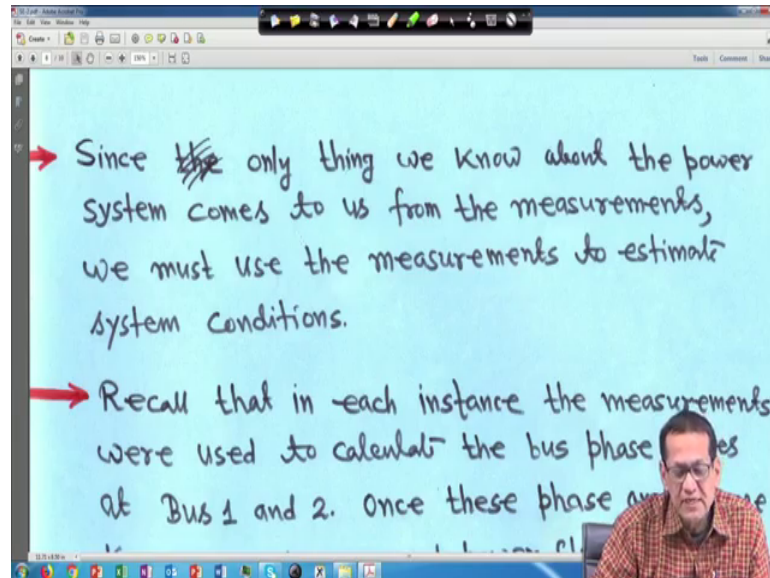 File Edit View Window Help
Create
Tools Comment
Since only thing we know about the power
system comes to us from the measurements,
we must use the measurements to estimate
system conditions.
Recall that in each instance the measurements
were used to calculate the bus phase
at Bus 1 and 2. Once these phase